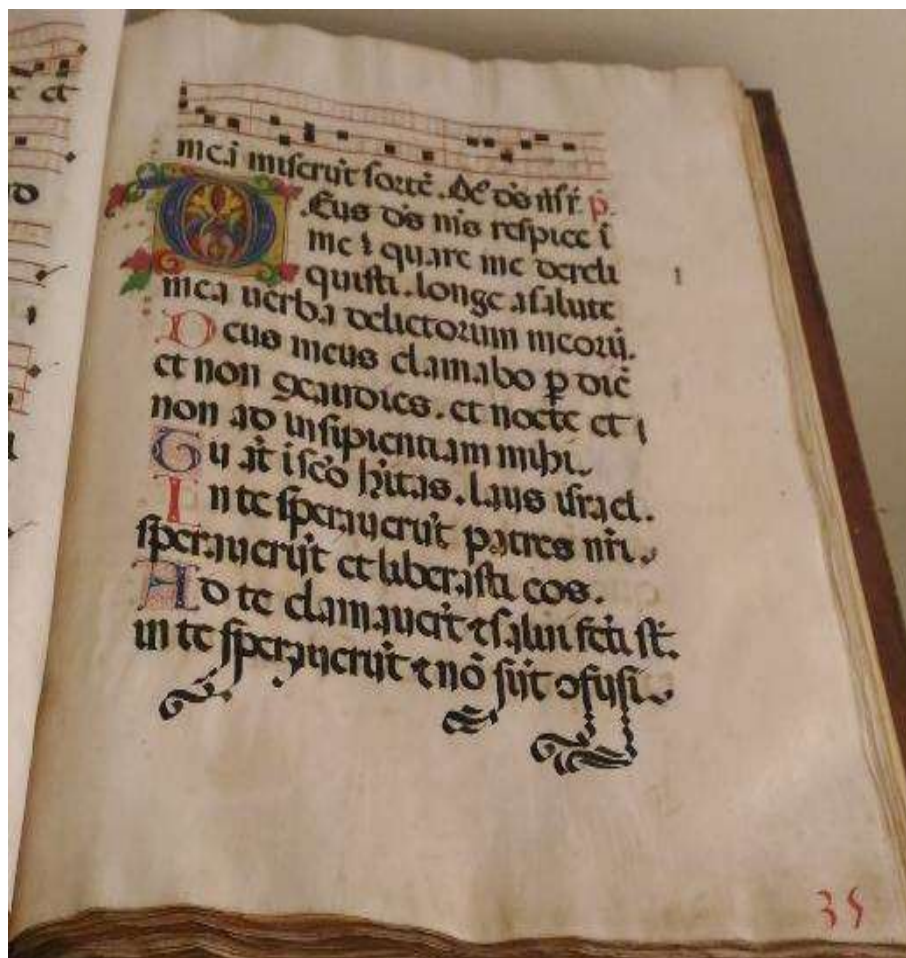 et
mea miserūt sortē. Ad dñs nr̄ p.
Deus ds ms respice ī
me ⁊ quare me dereli
quisti. longe a salute
mea uerba delictorum meorū.
Deus meus clamabo p̄ diē
et non exaudies. et nocte et
non ad insipientiam mihi.
Tu aūt ī scō hītas. laus israel.
In te sperauerūt patres nr̄i.
sperauerūt et liberasti eos.
Ad te clamauerūt ⁊ salui fcti sūt.
in te sperauerūt ⁊ nō sūt ↄfusi
35